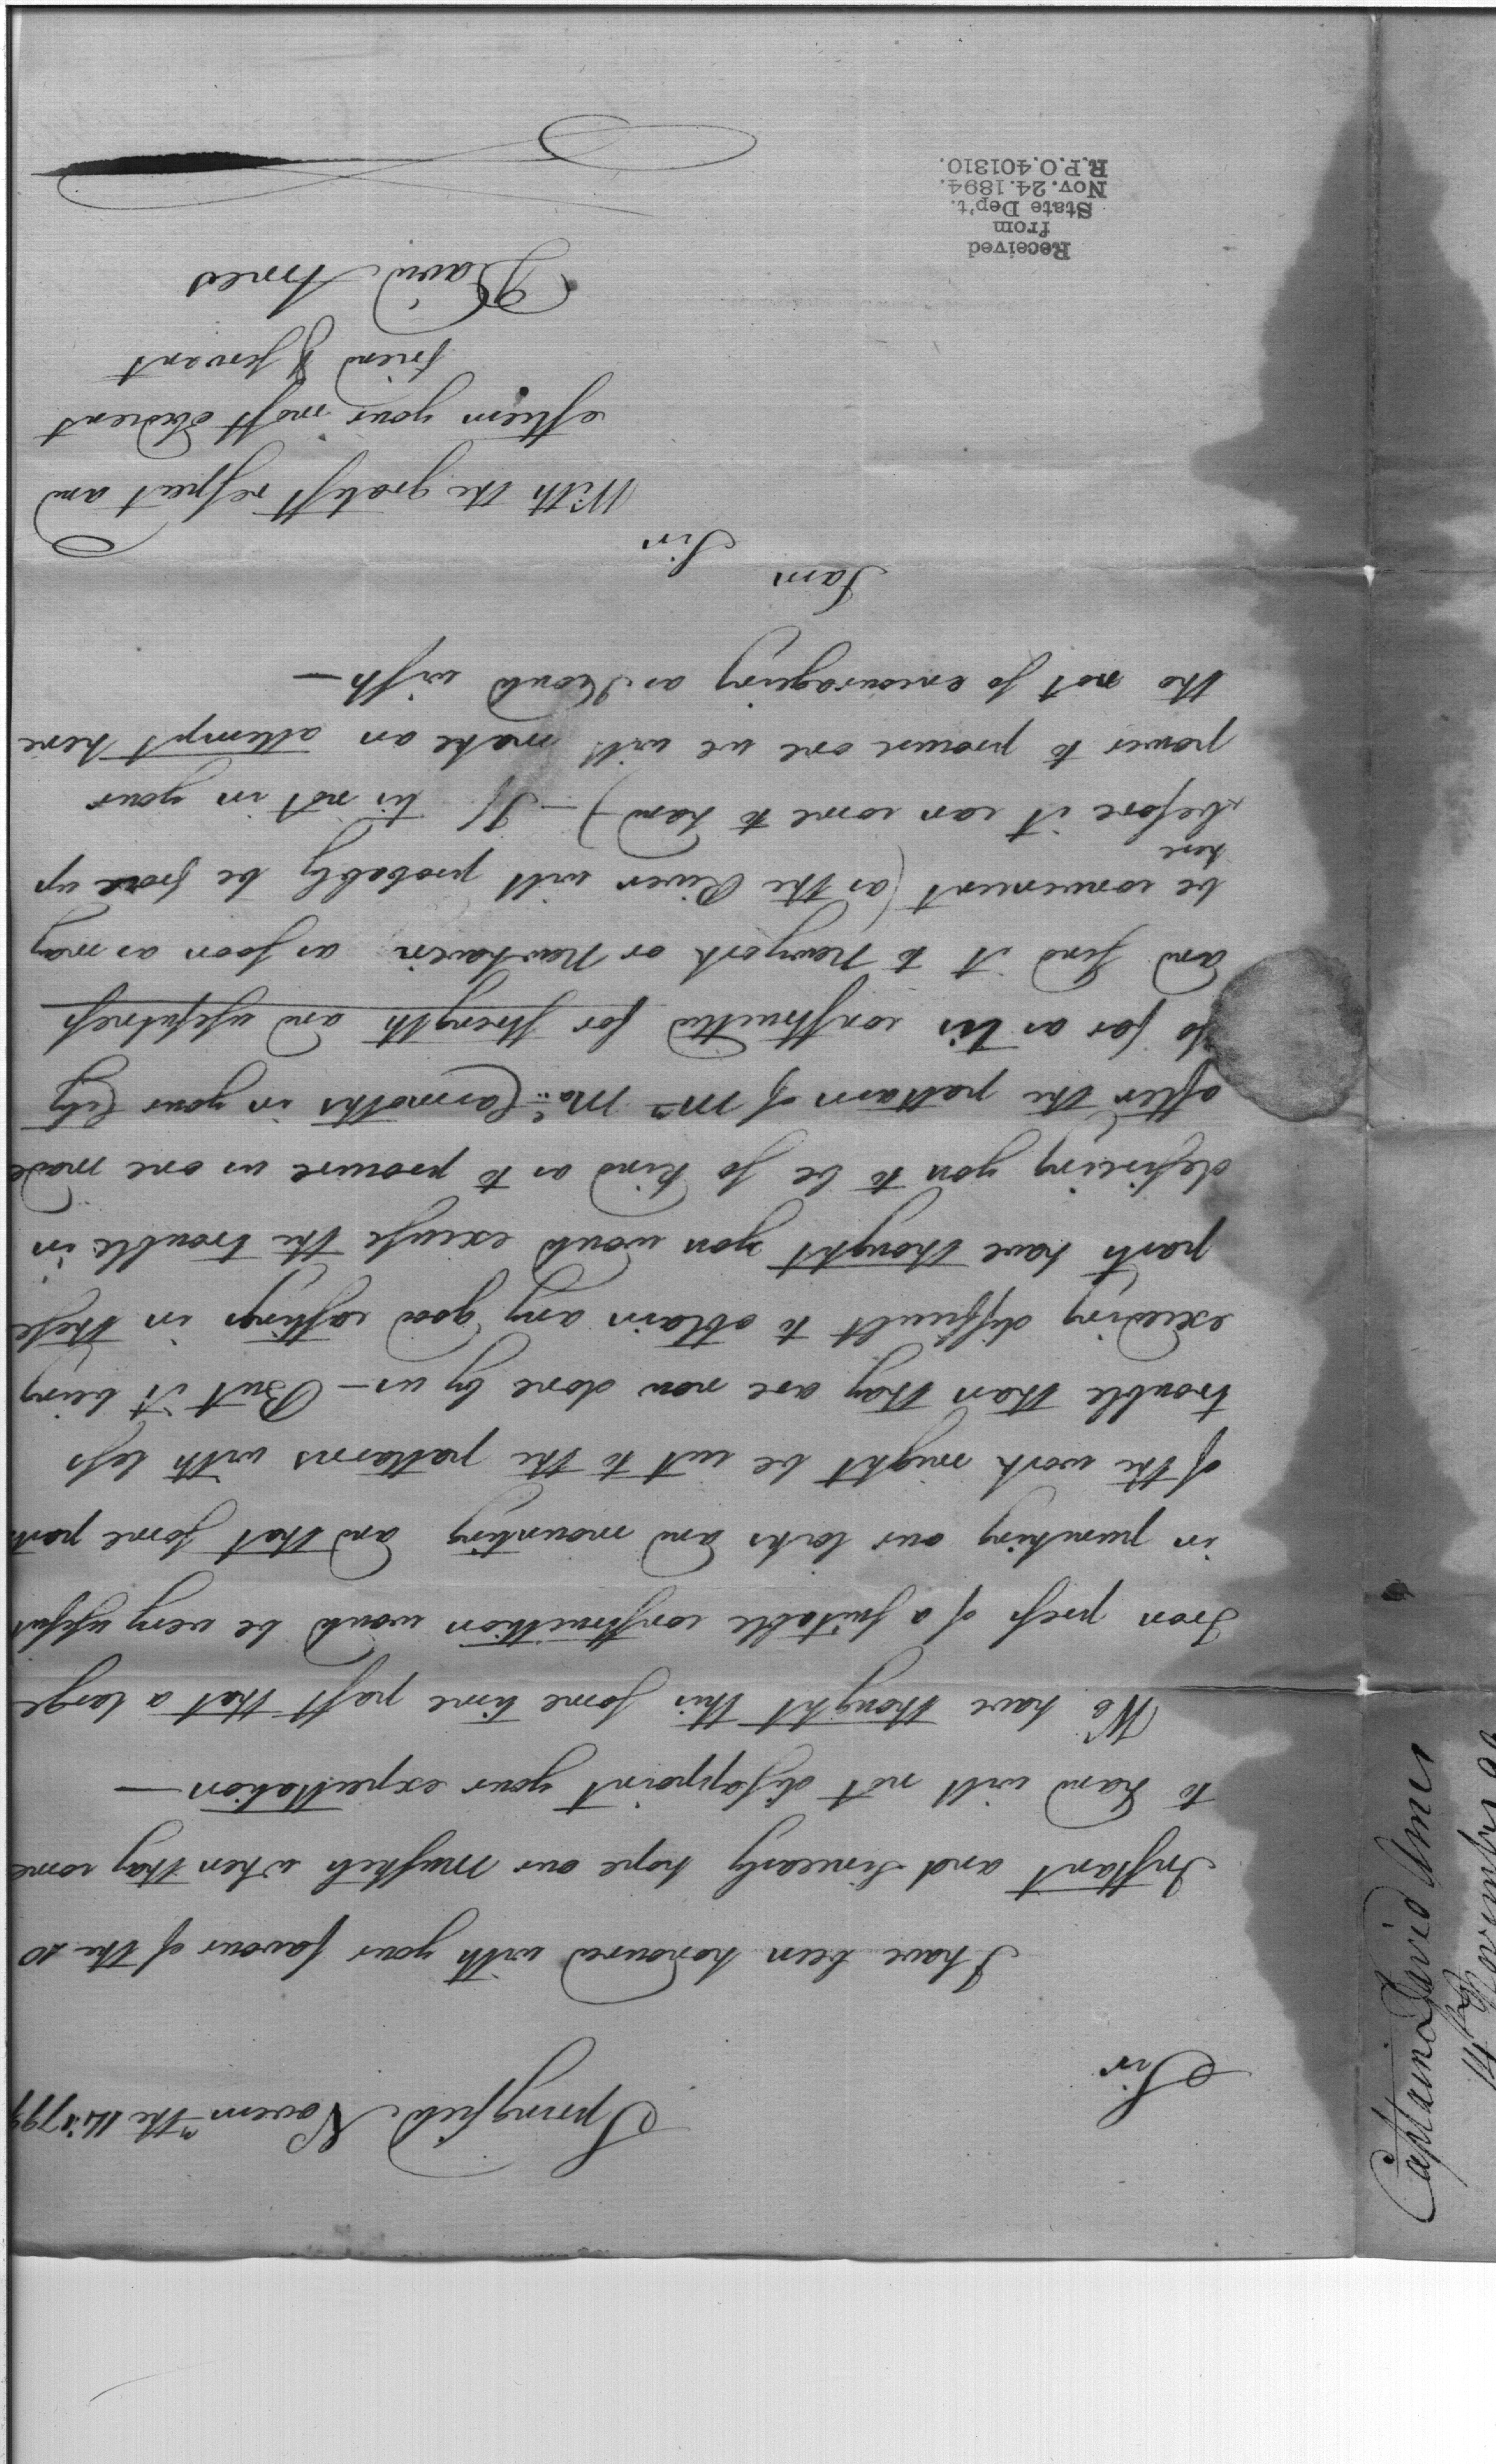 Springfield Novem the 14 1799
Sir
I have been honoured with your favour of the 20
Instant and Sincearly hope our Muskets when thay come
to hand will not disappoint your expecttation —
We have thought this some time past that a large
Iron press of a sutable construcktion would be very usefut
in punching our locks and mounting and that some parts
of the work might be cut to the pattarns with less
trouble than thay are now done by us — But it being
exceeding difficult to obtain any good castings in these
parts have thought you would excuse the trouble in
desireing you to be so kind as to procure us one made
after the pattarn of Mr Ma.. Cormoths in your City
so far as tis constructted for strength and usefulness
and send it to Newyork or Newhaven as soon as may
be convenient (as the River will probably be froze up
here
before it can come to hand) — If tis not in your
power to procure one we will make an attempt here
tho not so encouraging as I Could wish —
I am
Sir
With the gratest respect and
esteem your most obedient
friend & servant
David Ames
Received
from
State Dep't.
Nov. 24. 1894.
R.P.O. 401310.
Captain David Ames
14th November 99